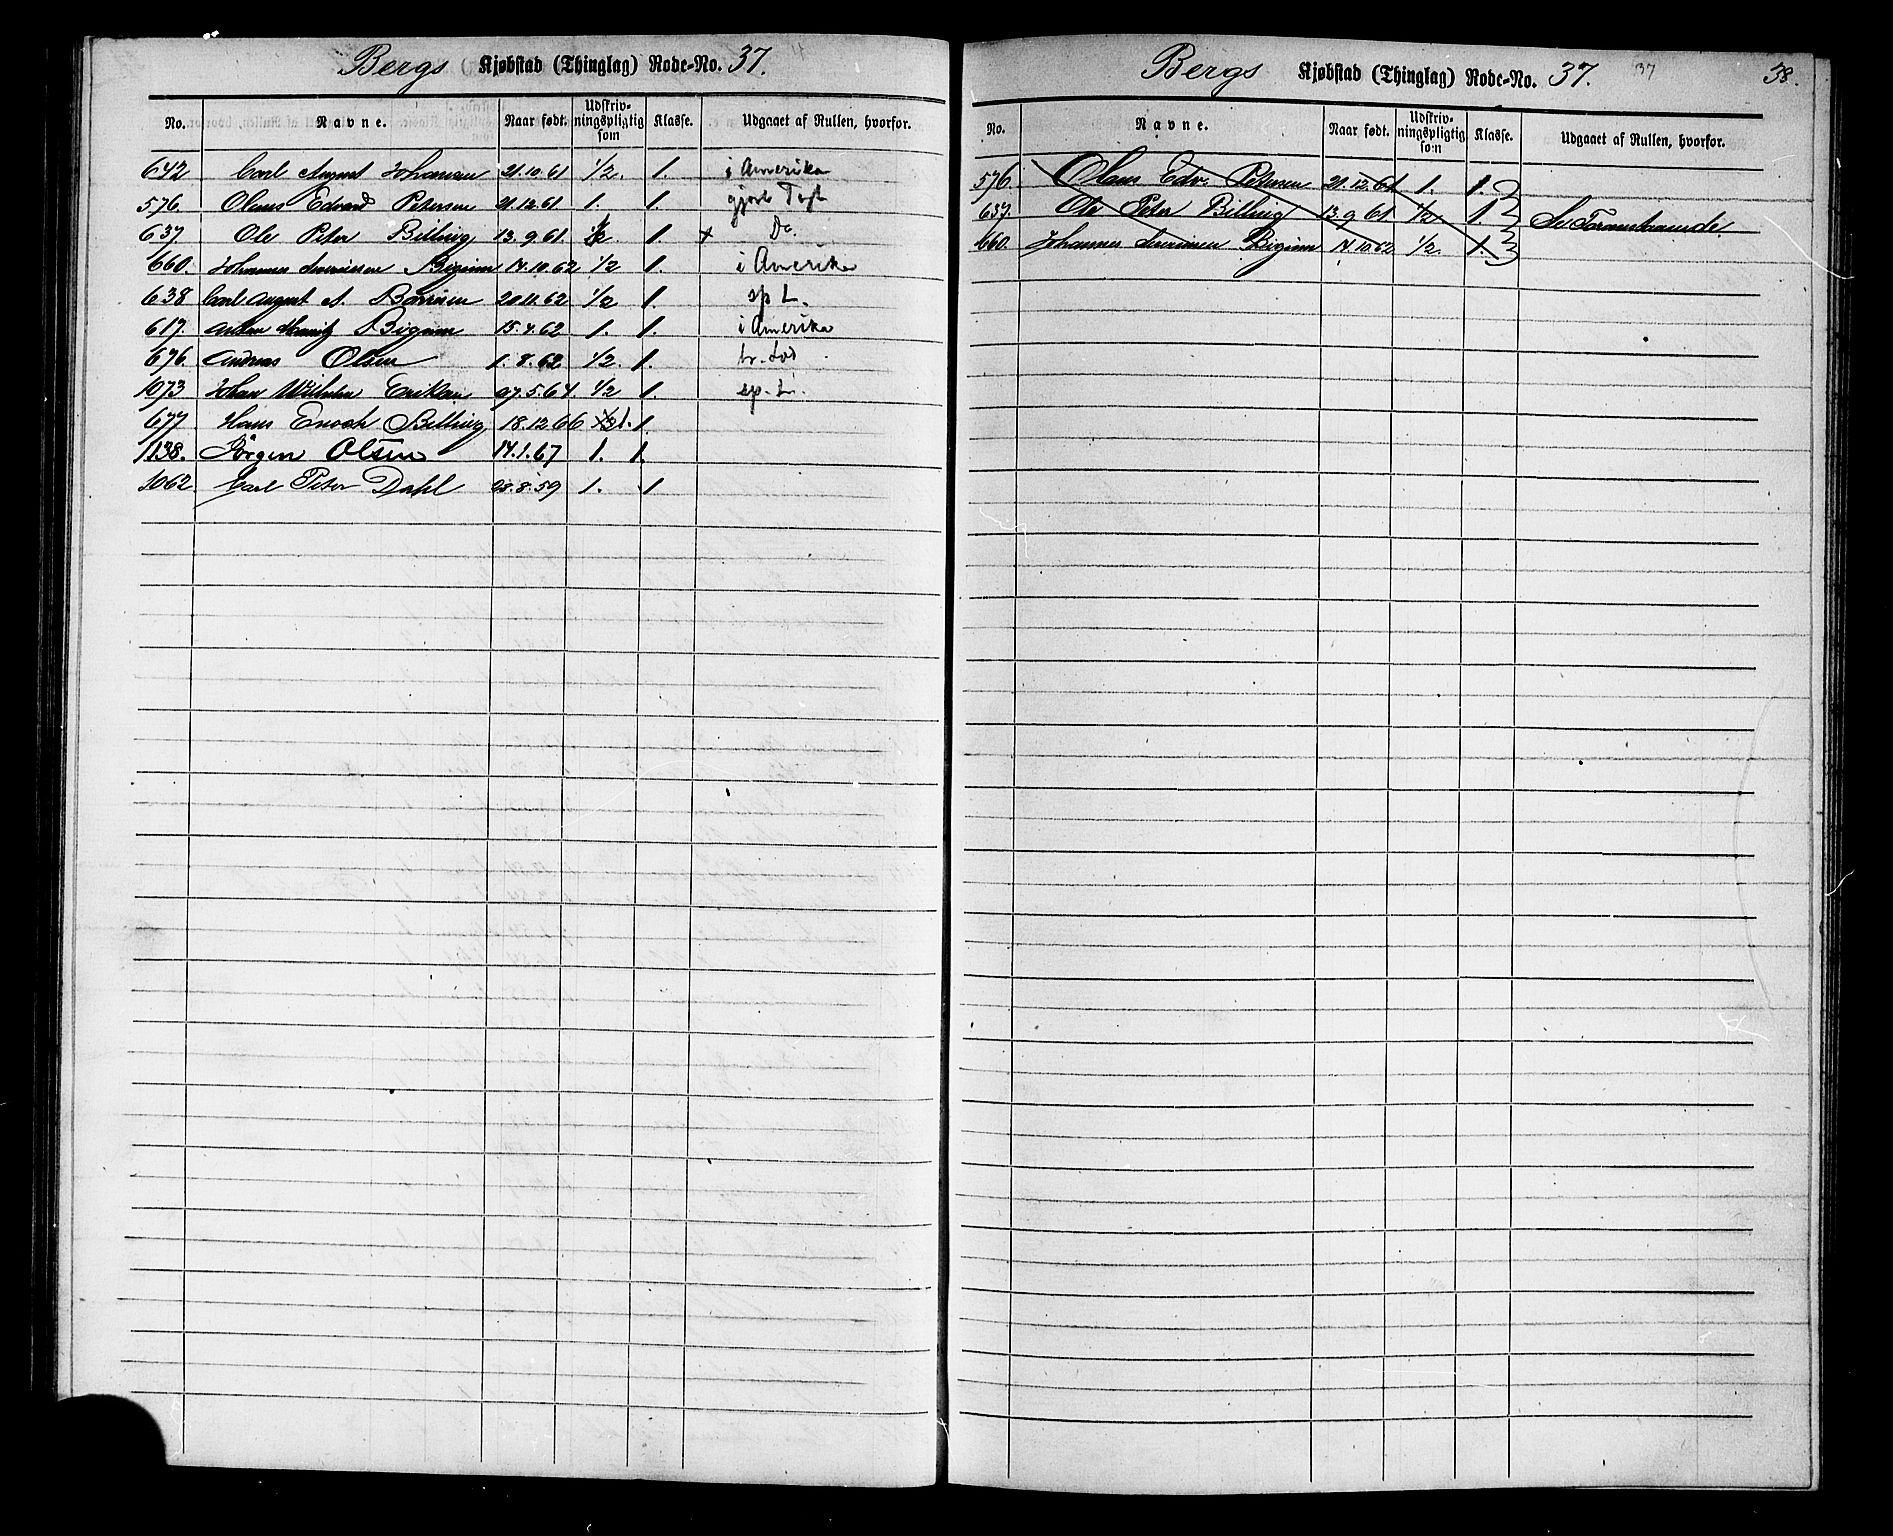 Bergs Kjøbstad (Thinglag) Rode-No. 37.
No. Navne. Naar født. Udskriv-ningspligtig som Klasse. Udgaaet af Rullen, hvorfor.
642 Carl August Johansen 21.10.61 1/2. 1. i Amerika
576. Olaus Edvard Petersen 21.12.61 1. 1. gjort
637 Ole Peter Billing 13.9.61. 1. + Do.
660. Johannes Bigum 14.10.62 1/2 1. i Amerika
638 Carl August A. 20.11.62 1/2 1. sp L.
617. Anton Bigum 15.4.62 1. 1. i Amerika
676. Andreas Olsen 1.8.62 1/2. 1.
1073 Johan Wilhelm 27.5.64. 1/2 1. sp. L.
677 Hans Enoch Billing 18.12.66 1. 1
1138. Jörgen Olsen 14.1.67 1. 1.
1062. Carl Peter Dahl 28.8.59 1. 1
Bergs Kjøbstad (Thinglag) Rode-No. 37. 37 38.
No. Navne. Naar født. Udskriv-ningspligtig som Klasse. Udgaaet af Rullen, hvorfor.
576. Olaus Edv. Petersen 21.12.61 1. 1.
637. Ole Peter Billing 13.9.61 1/2 1.
660. Johannes Bigum 14.10.62 1/2. 1.